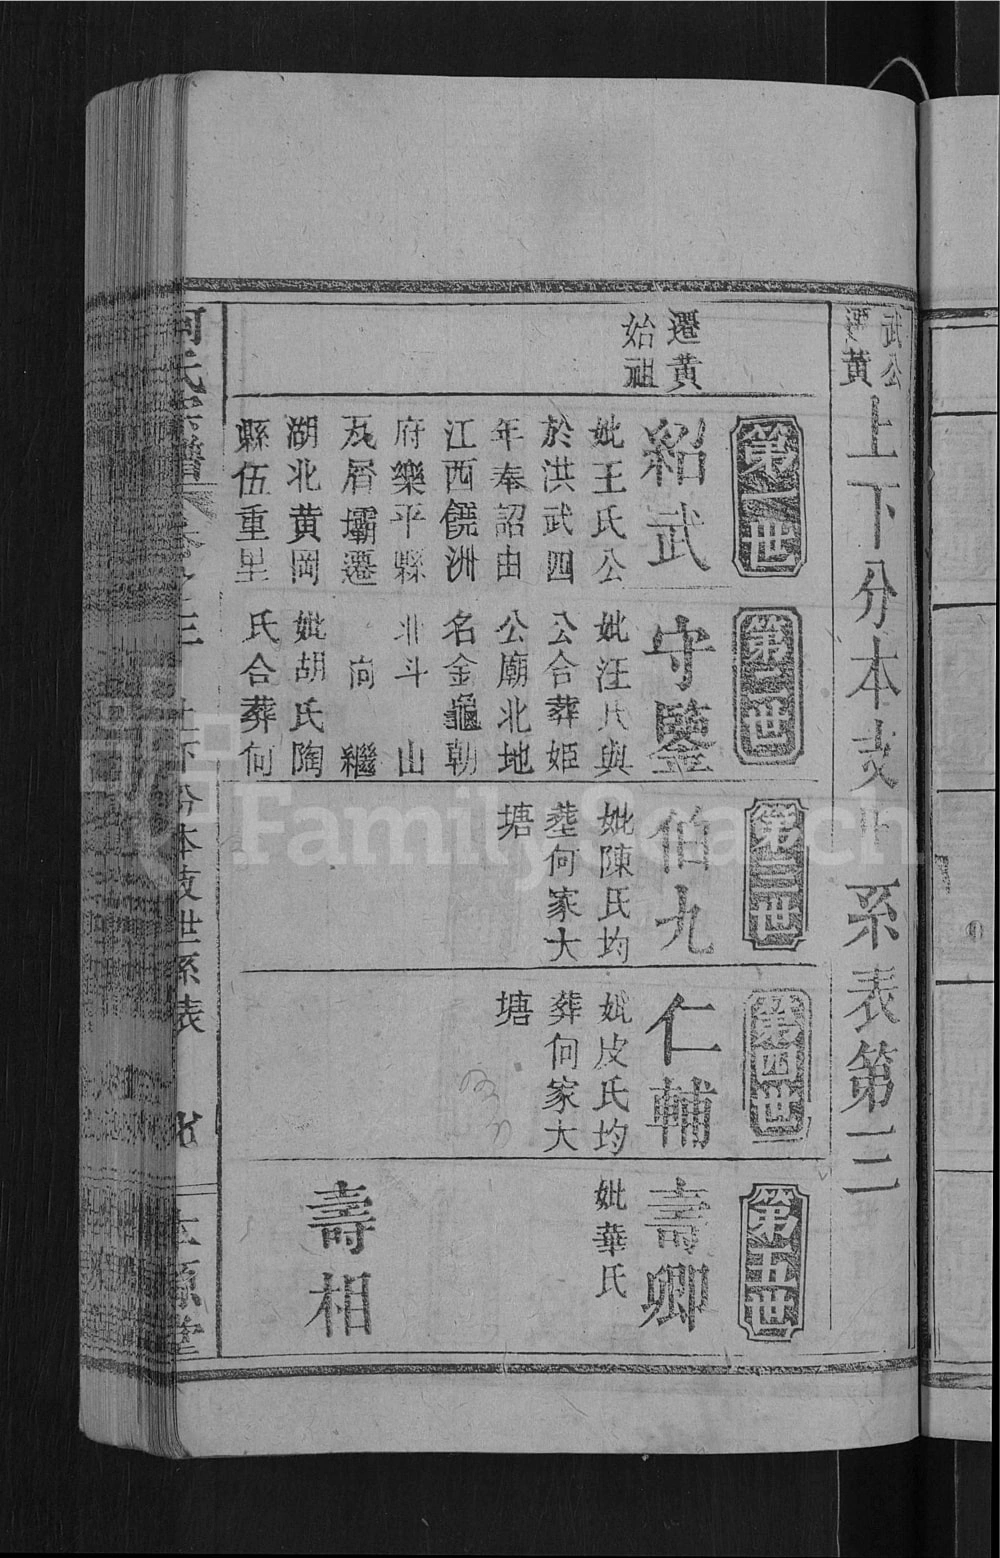 武公
遷黃
上下分本支世系表第三
遷黃
始祖
第一世
紹武
妣王氏公
於洪武四
年奉詔由
江西饒洲
府樂平縣
瓦屑壩遷
湖北黄岡
縣伍重里
第二世
守鑒
妣汪氏與
公合葬姫
公廟北地
名金龜朝
北斗山
向繼
妣胡氏陶
氏合葬何
第三世
伯九
妣陳氏均
塟何家大
塘
第四世
仁輔
妣皮氏均
葬何家大
塘
第五世
壽卿
妣華氏
壽相
何氏宗譜
上下分本支世系表
FamilySearch